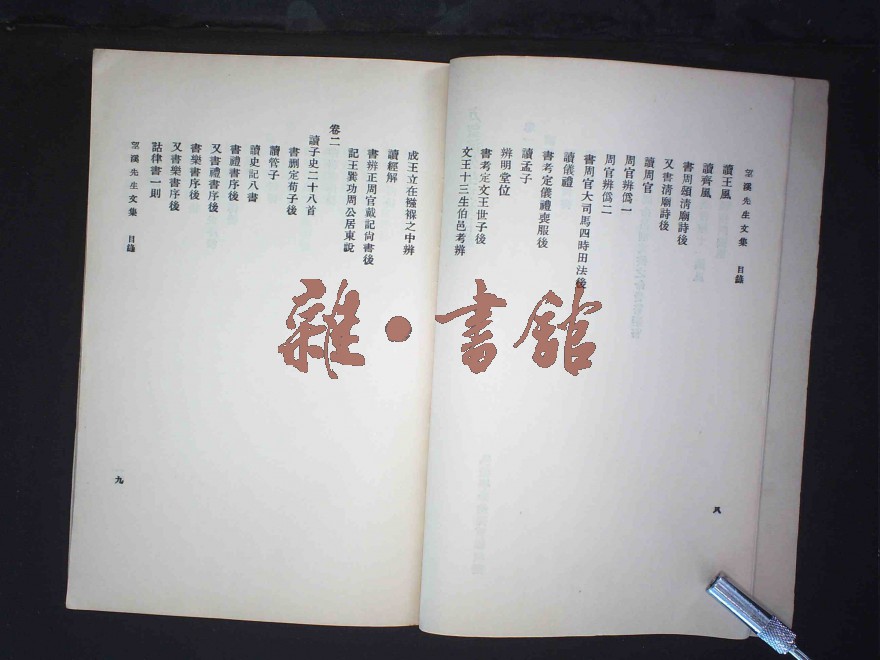 望溪先生文集 目錄
讀王風
讀齊風
書周頌清廟詩後
又書清廟詩後
讀周官
周官辨僞一
周官辨僞二
書周官大司馬四時田法後
讀儀禮
書考定儀禮喪服後
讀孟子
辨明堂位
書考定文王世子後
文王十三生伯邑考辨
八
成王立在襁褓之中辨
讀經解
書辨正周官戴記尚書後
記王巽功周公居東說
卷二
讀子史二十八首
書刪定荀子後
讀管子
讀史記八書
書禮書序後
又書禮書序後
書樂書序後
又書樂書序後
詁律書一則
望溪先生文集 目錄
九
雜·書館